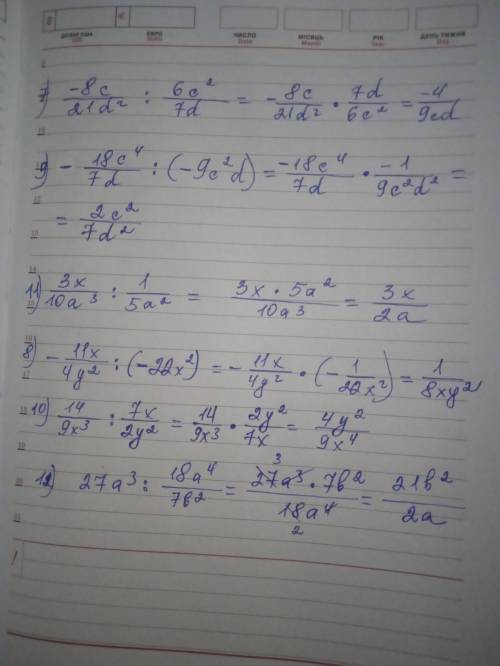 ДОЛАР США
USD
€
ЄВРО
EURO
ЧИСЛО
Date
МІСЯЦЬ
Month
РІК
Year
ДЕНЬ ТИЖНЯ
Day
7) -8c/21d² : 6c²/7d = - 8c/21d² · 7d/6c² = -4/9cd
9) - 18c⁴/7d : (-9c²d) = -18c⁴/7d · -1/9c²d² =
= 2c²/7d²
11) 3x/10a³ : 1/5a² = 3x · 5a²/10a³ = 3x/2a
8) - 11x/4y² : (-22x²) = - 11x/4y² · (- 1/22x²) = 1/8xy²
10) 14/9x³ : 7x/2y² = 14/9x³ · 2y²/7x = 4y²/9x⁴
12) 27a³ : 18a⁴/7b² = 3 27a³ · 7b²/18a⁴ 2 = 21b²/2a
!